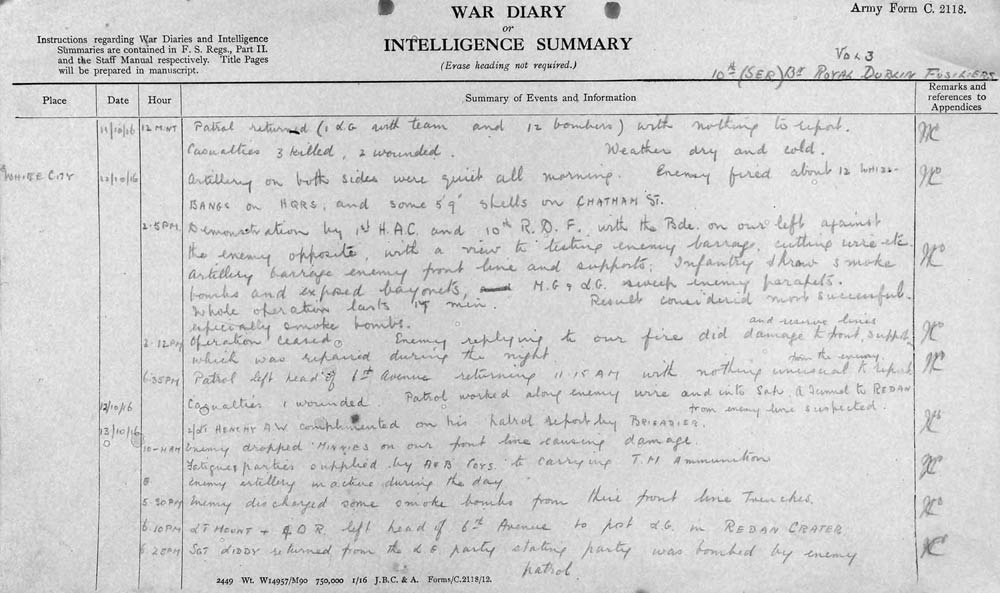 WAR DIARY
or
INTELLIGENCE SUMMARY
(Erase heading not required.)
Army Form C. 2118.
Instructions regarding War Diaries and Intelligence
Summaries are contained in F. S. Regs., Part II.
and the Staff Manual respectively. Title Pages
will be prepared in manuscript.
VOL 3
10th (SER) Bn ROYAL DUBLIN FUSILIERS
Place Date Hour Summary of Events and Information Remarks and references to Appendices
11/10/16 12 MINT Patrol returned (1 LG with team and 12 bombers) with nothing to report.
Casualties 3 killed, 2 wounded. Weather dry and cold.
WHITE CITY 12/10/16 Artillery on both sides were quiet all morning. Enemy fired about 12 WHIZZ-
BANGS on HQRS, and some 5.9" shells on CHATHAM ST.
2.5 PM Demonstration by 1st H.A.C. and 10th R.D.F. with the Bde. on our left against
the enemy opposite, with a view to testing enemy barrage, cutting wire etc.
Artillery barrage enemy front line and supports; Infantry throw smoke
bombs and exposed bayonets, M.G & LG. sweep enemy parapets.
Whole operation lasts min. Result considered most successful.
especially smoke bombs.
2.12 PM Operation ceased. Enemy replying to our fire did damage to front, support, and reserve lines
which was repaired during the night
6.35 PM Patrol left head of 6th Avenue returning 11.15 AM with nothing unusual to report from the enemy.
12/10/16 Casualties 1 wounded. Patrol worked along enemy wire and into Sap. A Tunnel to REDAN
from enemy line suspected.
13/10/16 2/Lt HENCHY AW complimented on his patrol report by BRIGADIER.
10-11 AM Enemy dropped MINNIES on our front line causing damage.
Fatigue parties supplied by A & B Coys. to carrying T.M Ammunition
Enemy artillery inactive during the day
5.30 PM Enemy discharged some smoke bombs from their front line Trenches.
6.10 PM LT MOUNT + 4 O.R. left head of 6th Avenue to post LG. in REDAN CRATER
6.25 PM SGT LIDDY returned from the LG party stating party was bombed by enemy
patrol
2449 Wt. W14957/M90 750,000 1/16 J.B.C. & A. Forms/C.2118/12.